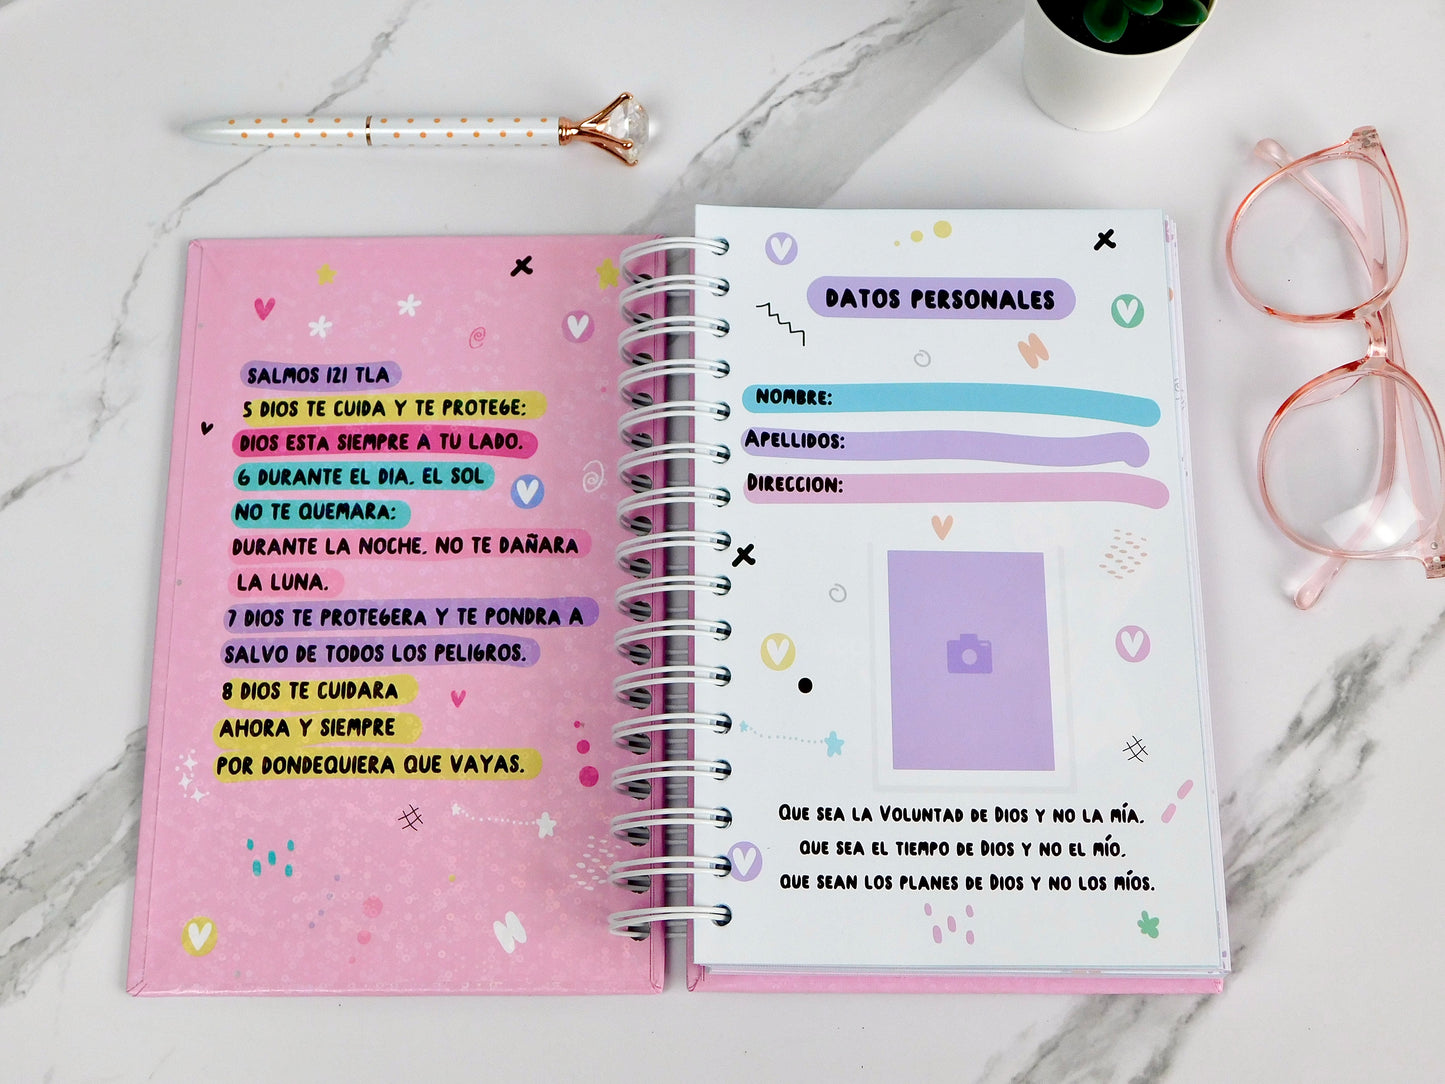 SALMOS 121 TLA
5 DIOS TE CUIDA Y TE PROTEGE;
DIOS ESTA SIEMPRE A TU LADO.
6 DURANTE EL DIA, EL SOL
NO TE QUEMARA;
DURANTE LA NOCHE, NO TE DAÑARA
LA LUNA.
7 DIOS TE PROTEGERA Y TE PONDRA A
SALVO DE TODOS LOS PELIGROS.
8 DIOS TE CUIDARA
AHORA Y SIEMPRE
POR DONDEQUIERA QUE VAYAS.
DATOS PERSONALES
NOMBRE:
APELLIDOS:
DIRECCION:
QUE SEA LA VOLUNTAD DE DIOS Y NO LA MÍA,
QUE SEA EL TIEMPO DE DIOS Y NO EL MÍO,
QUE SEAN LOS PLANES DE DIOS Y NO LOS MÍOS.